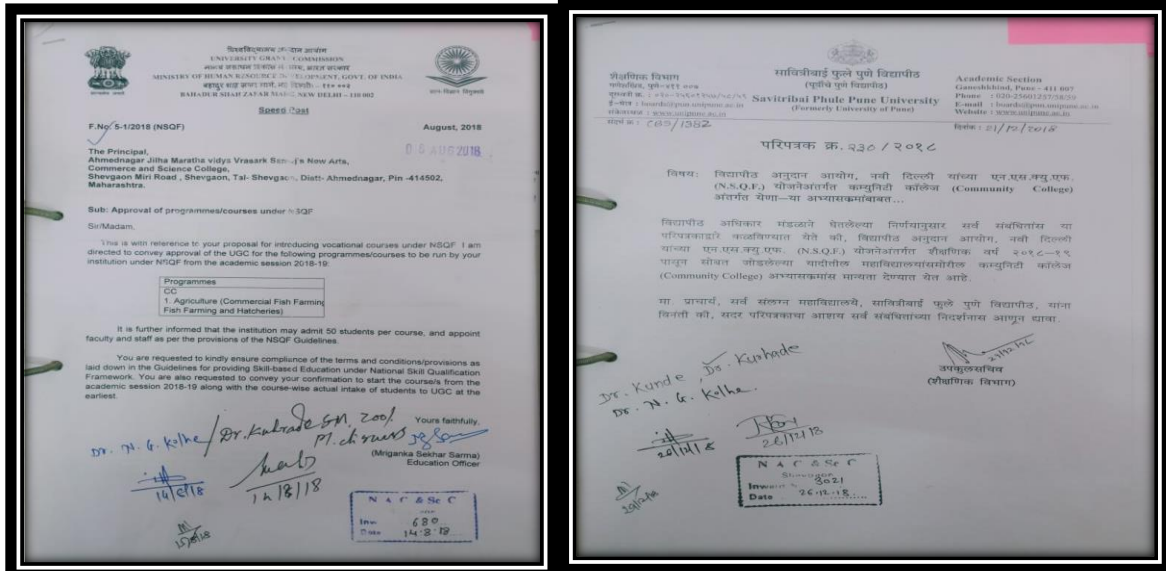 विश्वविद्यालय अनुदान आयोग
UNIVERSITY GRANTS COMMISSION
MINISTRY OF HUMAN RESOURCE DEVELOPMENT, GOVT. OF INDIA
BAHADUR SHAH ZAFAR MARG, NEW DELHI – 110 002
Speed Post
F.No. 5-1/2018 (NSQF)
August, 2018
AUG 2018
The Principal,
Ahmednagar Jilha Maratha vidya Vrasark New Arts,
Commerce and Science College,
Shevgaon Miri Road , Shevgaon, Tal- Shevgaon, Distt- Ahmednagar, Pin -414502,
Maharashtra.
Sub: Approval of programmes/courses under NSQF
Sir/Madam,
This is with reference to your proposal for introducing vocational courses under NSQF I am
directed to convey approval of the UGC for the following programmes/courses to be run by your
institution under NSQF from the academic session 2018-19:
Programmes
CC
1. Agriculture (Commercial Fish Farming
Fish Farming and Hatcheries)
It is further informed that the institution may admit 50 students per course, and appoint
faculty and staff as per the provisions of the NSQF Guidelines.
You are requested to kindly ensure compliance of the terms and conditions/provisions as
laid down in the Guidelines for providing Skill-based Education under National Skill Qualification
Framework. You are also requested to convey your confirmation to start the course/s from the
academic session 2018-19 along with the course-wise actual intake of students to UGC at the
earliest.
Yours faithfully,
Dr. N. G. Kolhe
(Mriganka Sekhar Sarma)
Education Officer
14/8/18
14/8/18
N A C & Sc C
680
Date 14-8-18
शैक्षणिक विभाग
गणेशखिंड, पुणे-४११ ००७
सावित्रीबाई फुले पुणे विद्यापीठ
(पूर्वीचे पुणे विद्यापीठ)
Savitribai Phule Pune University
(Formerly University of Pune)
Academic Section
Ganeshkhind, Pune - 411 007
Phone : 020-25601257/58/59
E-mail : boards@pun.unipune.ac.in
Website : www.unipune.ac.in
संदर्भ क्र : CBS/1382
दिनांक : 21/12/2018
परिपत्रक क्र. २३०/२०१८
विषय: विद्यापीठ अनुदान आयोग, नवी दिल्ली यांच्या एन.एस.क्यु.एफ.
(N.S.Q.F.) योजनेअंतर्गत कम्युनिटी कॉलेज (Community College)
अंतर्गत येणा—या अभ्यासक्रमांबाबत...
विद्यापीठ अधिकार मंडळाने घेतलेल्या निर्णयानुसार सर्व संबंधितांस या
परिपत्रकाद्वारे कळविण्यात येते की, विद्यापीठ अनुदान आयोग, नवी दिल्ली
यांच्या एन.एस.क्यु.एफ. (N.S.Q.F.) योजनेअंतर्गत शैक्षणिक वर्ष २०१८—१९
पासून सोबत जोडलेल्या यादीतील महाविद्यालयांसमोरील कम्युनिटी कॉलेज
(Community College) अभ्यासक्रमांस मान्यता देण्यात येत आहे.
मा. प्राचार्य, सर्व संलग्न महाविद्यालये, सावित्रीबाई फुले पुणे विद्यापीठ, यांना
विनंती की, सदर परिपत्रकाचा आशय सर्व संबंधितांच्या निदर्शनास आणून द्यावा.
Dr. Kunde, Dr. Kurhade
Dr. N. G. Kolhe
उपकुलसचिव
(शैक्षणिक विभाग)
26/12/18
26/12/18
N A C & Sc C
3021
Date 26-12-18